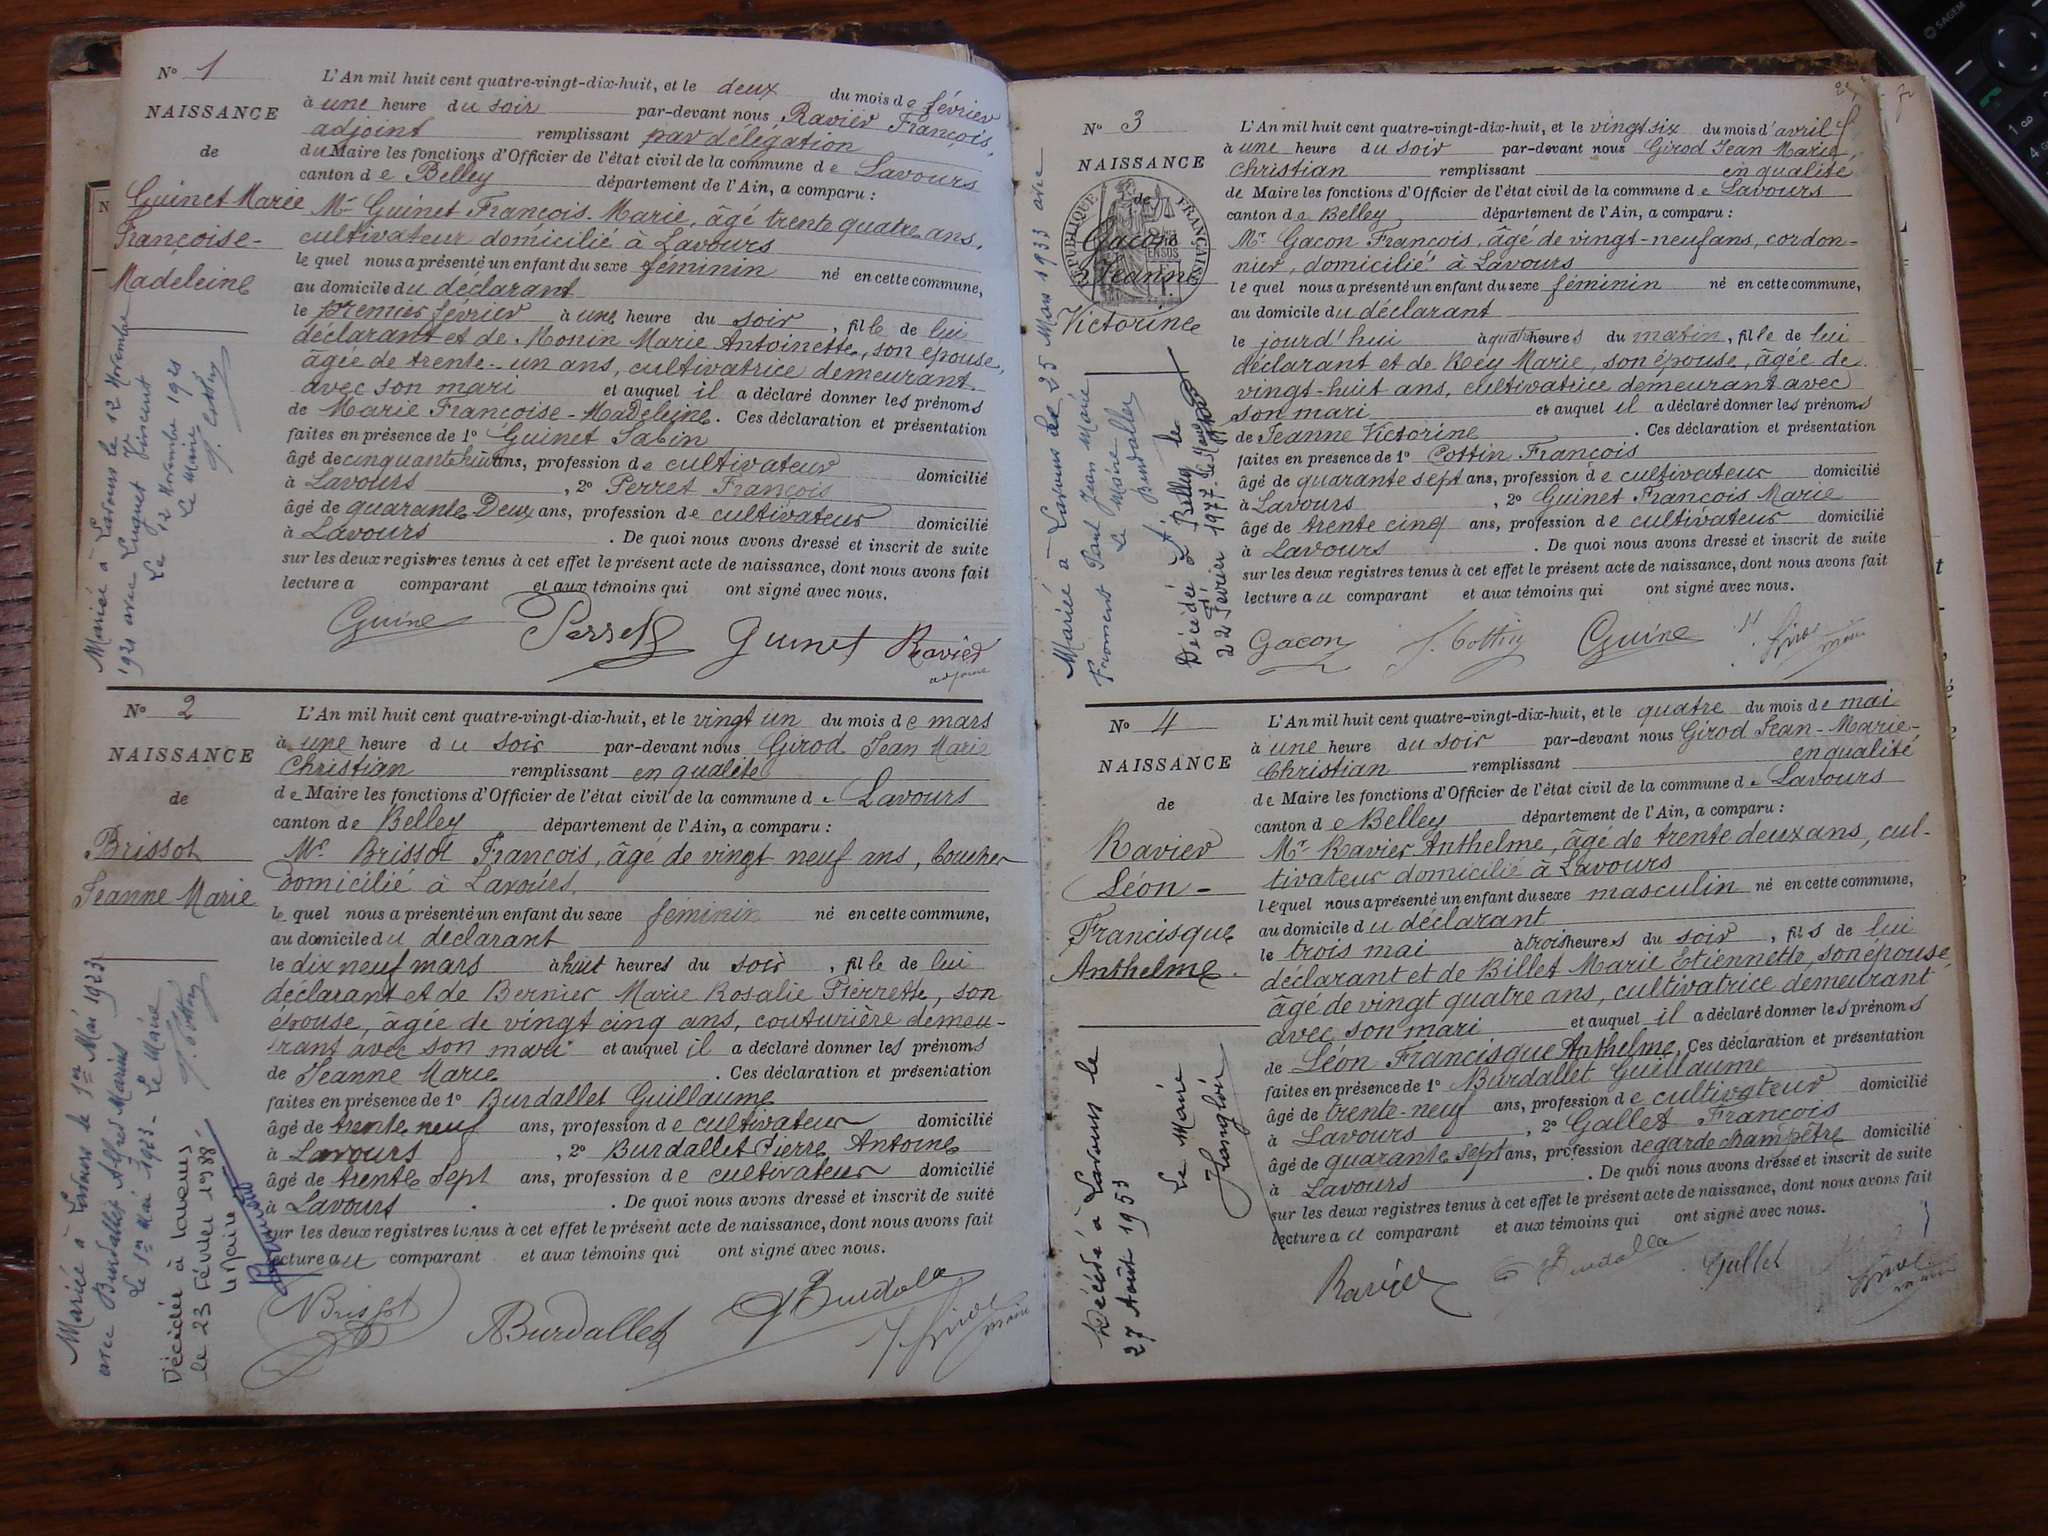 N° 1
NAISSANCE
de
Guinet Marie
Françoise-
Madeleine
L'An mil huit cent quatre-vingt-dix-huit, et le deux du mois de février
à une heure du soir par-devant nous Ravier François,
adjoint remplissant par délégation
du Maire les fonctions d'Officier de l'état civil de la commune de Lavours
canton de Belley département de l'Ain, a comparu :
Mr Guinet François-Marie, âgé trente quatre ans,
cultivateur domicilié à Lavours
lequel nous a présenté un enfant du sexe féminin né en cette commune,
au domicile du déclarant
le premier février à une heure du soir, fille de lui
déclarant et de Monin Marie Antoinette, son épouse,
âgée de trente-un ans, cultivatrice demeurant
avec son mari et auquel il a déclaré donner les prénoms
de Marie Françoise-Madeleine. Ces déclaration et présentation
faites en présence de 1° Guinet Sabin
âgé de cinquante huit ans, profession de cultivateur domicilié
à Lavours, 2° Perret François
âgé de quarante Deux ans, profession de cultivateur domicilié
à Lavours. De quoi nous avons dressé et inscrit de suite
sur les deux registres tenus à cet effet le présent acte de naissance, dont nous avons fait
lecture a comparant et aux témoins qui ont signé avec nous.
Guine Perret Guinet Ravier
adjoint
Mariée à Lavours le 12 Novembre
1921 avec Vincent
Le 12 Novembre 1921
Le Maire
N° 2
NAISSANCE
de
Brissot
Jeanne Marie
L'An mil huit cent quatre-vingt-dix-huit, et le vingt un du mois de mars
à une heure du soir par-devant nous Girod Jean Marie
Christian remplissant en qualité
de Maire les fonctions d'Officier de l'état civil de la commune de Lavours
canton de Belley département de l'Ain, a comparu :
Mr Brissot François, âgé de vingt neuf ans, boucher
domicilié à Lavours,
lequel nous a présenté un enfant du sexe féminin né en cette commune,
au domicile du déclarant
le dix neuf mars à huit heures du soir, fille de lui
déclarant et de Bernier Marie Rosalie Pierrette, son
épouse, âgée de vingt cinq ans, couturière demeu-
rant avec son mari et auquel il a déclaré donner les prénoms
de Jeanne Marie. Ces déclaration et présentation
faites en présence de 1° Burdallet Guillaume
âgé de trente neuf ans, profession de cultivateur domicilié
à Lavours, 2° Burdallet Pierre Antoine
âgé de trente sept ans, profession de cultivateur domicilié
à Lavours. De quoi nous avons dressé et inscrit de suite
sur les deux registres tenus à cet effet le présent acte de naissance, dont nous avons fait
lecture au comparant et aux témoins qui ont signé avec nous.
Brissot Burdallet
Mariée à Lavours le 1er Mai 1923
avec Burdallet Alfred Marius
Le 1er Mai 1923 - Le Maire
Décédée à Lavours
le 23 Février 1988
Le Maire
N° 3
NAISSANCE
de
Gacon
Jeanne
Victorine
RÉPUBLIQUE FRANÇAISE
L'An mil huit cent quatre-vingt-dix-huit, et le vingt six du mois d'avril
à une heure du soir par-devant nous Girod Jean Marie,
Christian remplissant en qualité
de Maire les fonctions d'Officier de l'état civil de la commune de Lavours
canton de Belley département de l'Ain, a comparu :
Mr Gacon François, âgé de vingt-neuf ans, cordon-
nier, domicilié à Lavours
lequel nous a présenté un enfant du sexe féminin né en cette commune,
au domicile du déclarant
le jourd'hui à quatre heures du matin, fille de lui
déclarant et de Rey Marie, son épouse, âgée de
vingt-huit ans, cultivatrice demeurant avec
son mari et auquel il a déclaré donner les prénoms
de Jeanne Victorine. Ces déclaration et présentation
faites en présence de 1° Cottin François
âgé de quarante sept ans, profession de cultivateur domicilié
à Lavours, 2° Guinet François Marie
âgé de trente cinq ans, profession de cultivateur domicilié
à Lavours. De quoi nous avons dressé et inscrit de suite
sur les deux registres tenus à cet effet le présent acte de naissance, dont nous avons fait
lecture au comparant et aux témoins qui ont signé avec nous.
Gacon Guine
Mariée à Lavours le 25 Mars 1933 avec
Froment Paul Jean Marie
Le Maire
Décédée à Belley le
22 Février 1977
N° 4
NAISSANCE
de
Ravier
Léon-
Francisque
Anthelme.
L'An mil huit cent quatre-vingt-dix-huit, et le quatre du mois de mai
à une heure du soir par-devant nous Girod Jean-Marie-
Christian remplissant en qualité
de Maire les fonctions d'Officier de l'état civil de la commune de Lavours
canton de Belley département de l'Ain, a comparu :
Mr Ravier Anthelme, âgé de trente deux ans, cul-
tivateur domicilié à Lavours
lequel nous a présenté un enfant du sexe masculin né en cette commune,
au domicile du déclarant
le trois mai à trois heures du soir, fils de lui
déclarant et de Billet Marie Etiennette, son épouse
âgé de vingt quatre ans, cultivatrice demeurant
avec son mari et auquel il a déclaré donner les prénoms
de Léon Francisque Anthelme. Ces déclaration et présentation
faites en présence de 1° Burdallet Guillaume
âgé de trente-neuf ans, profession de cultivateur domicilié
à Lavours, 2° Gallet François
âgé de quarante sept ans, profession de garde champêtre domicilié
à Lavours. De quoi nous avons dressé et inscrit de suite
sur les deux registres tenus à cet effet le présent acte de naissance, dont nous avons fait
lecture au comparant et aux témoins qui ont signé avec nous.
Ravier Gallet
Décédé à Lavours le
27 Août 1953
Le Maire
SAGEM